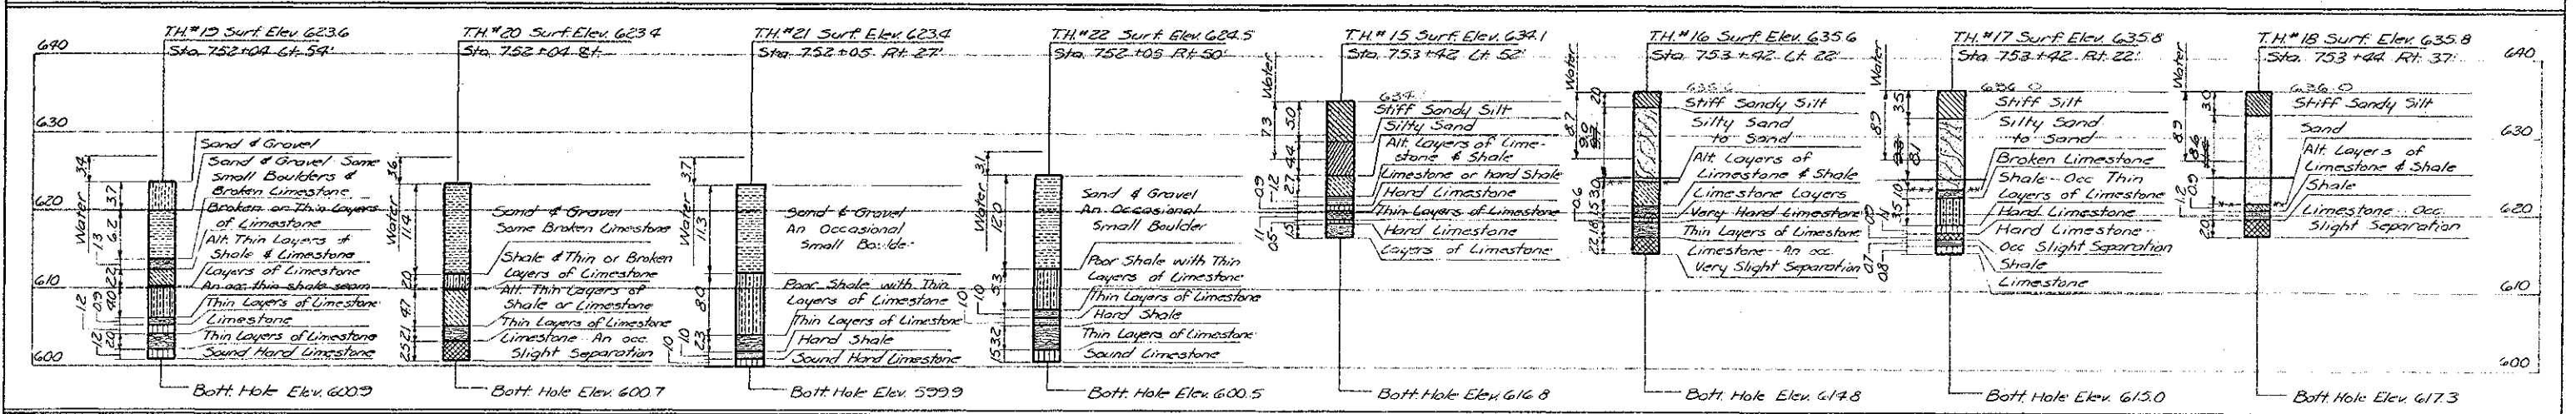 T.H.#19 Surf. Elev. 623.6
Sta. 752+04 Lt. 54'
640
630
620
610
600
Water 3.4
3.7
6.2
1.3
2.2
4.0
0.9
1.2
2.0
1.2
Sand & Gravel
Sand & Gravel Some
Small Boulders &
Broken Limestone
Broken or Thin Layers
of Limestone
Alt. Thin Layers of
Shale & Limestone
Layers of Limestone
An occ. thin shale seam
Thin Layers of Limestone
Limestone
Thin Layers of Limestone
Sound Hard Limestone
Bott. Hole Elev. 600.9
T.H.#20 Surf. Elev. 623.4
Sta. 752+04
Water 3.6
11.4
2.0
4.7
2.1
2.5
Sand & Gravel
Some Broken Limestone
Shale & Thin or Broken
Layers of Limestone
Alt. Thin Layers of
Shale or Limestone
Thin Layers of Limestone
Limestone An occ.
Slight Separation
Bott. Hole Elev. 600.7
T.H.#21 Surf. Elev. 623.4
Sta. 752+05 Rt. 27'
Water 3.7
11.3
8.0
2.3
1.0
1.0
Sand & Gravel
An Occasional
Small Boulder
Poor Shale with Thin
Layers of Limestone
Thin Layers of Limestone
Hard Shale
Sound Hard Limestone
Bott. Hole Elev. 599.9
T.H.#22 Surf. Elev. 624.5
Sta. 752+05 Rt. 50'
Water 3.1
12.0
5.3
1.0
1.0
3.2
1.5
Sand & Gravel
An Occasional
Small Boulder
Poor Shale with Thin
Layers of Limestone
Thin Layers of Limestone
Hard Shale
Thin Layers of Limestone
Sound Limestone
Bott. Hole Elev. 600.5
T.H.#15 Surf. Elev. 634.1
Sta. 753+42 Lt. 52'
Water
7.3
5.0
4.4
2.7
1.2
0.9
1.1
0.5
1.5
634
Stiff Sandy Silt
Silty Sand
Alt. Layers of Lime-
stone & Shale
Limestone or hard Shale
Hard Limestone
Thin Layers of Limestone
Hard Limestone
Layers of Limestone
Bott. Hole Elev. 616.8
T.H.#16 Surf. Elev. 635.6
Sta. 753+42 Lt. 22'
Water
8.7
2.0
9.0
3.0
1.5
0.6
1.6
2.2
Stiff Sandy Silt
Silty Sand
to Sand
Alt. Layers of
Limestone & Shale
Limestone Layers
Very Hard Limestone
Thin Layers of Limestone
Limestone - An occ.
Very Slight Separation
Bott. Hole Elev. 614.8
T.H.#17 Surf. Elev. 635.8
Sta. 753+42 Rt. 22'
Water
8.9
3.5
8.1
1.0
3.5
1.1
0.9
0.7
0.8
636.0
Stiff Silt
Silty Sand
to Sand
Broken Limestone
Shale - Occ Thin
Layers of Limestone
Hard Limestone
Hard Limestone -
Occ Slight Separation
Shale
Limestone
Bott. Hole Elev. 615.0
T.H.#18 Surf. Elev. 635.8
Sta. 753+44 Rt. 37'
Water
8.9
3.0
8.6
0.9
1.2
2.0
636.0
Stiff Sandy Silt
Sand
Alt. Layers of
Limestone & Shale
Shale
Limestone Occ.
Slight Separation
Bott. Hole Elev. 617.3
640
630
620
610
600